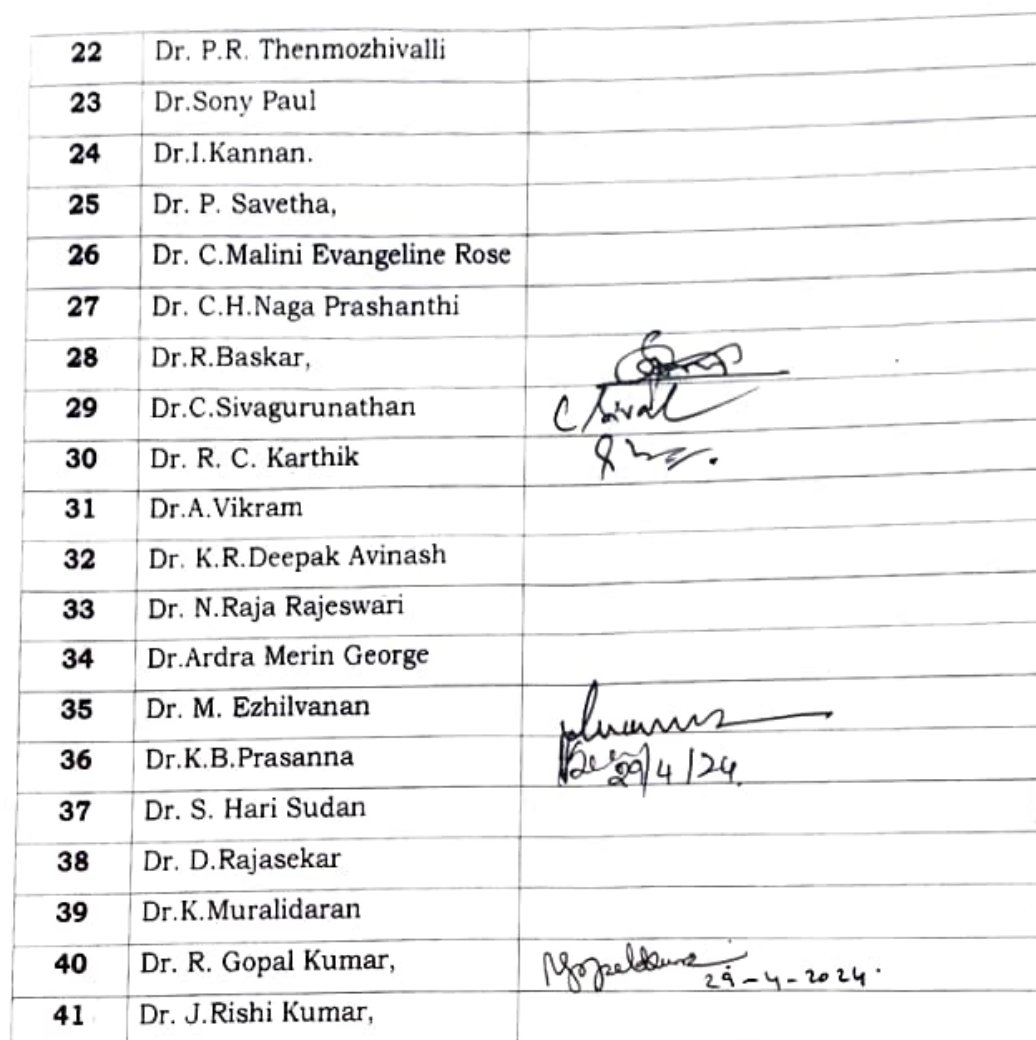 22 Dr. P.R. Thenmozhivalli
23 Dr.Sony Paul
24 Dr.I.Kannan.
25 Dr. P. Savetha,
26 Dr. C.Malini Evangeline Rose
27 Dr. C.H.Naga Prashanthi
28 Dr.R.Baskar,
29 Dr.C.Sivagurunathan
30 Dr. R. C. Karthik
31 Dr.A.Vikram
32 Dr. K.R.Deepak Avinash
33 Dr. N.Raja Rajeswari
34 Dr.Ardra Merin George
35 Dr. M. Ezhilvanan
36 Dr.K.B.Prasanna 29/4/24.
37 Dr. S. Hari Sudan
38 Dr. D.Rajasekar
39 Dr.K.Muralidaran
40 Dr. R. Gopal Kumar, 29-4-2024.
41 Dr. J.Rishi Kumar,